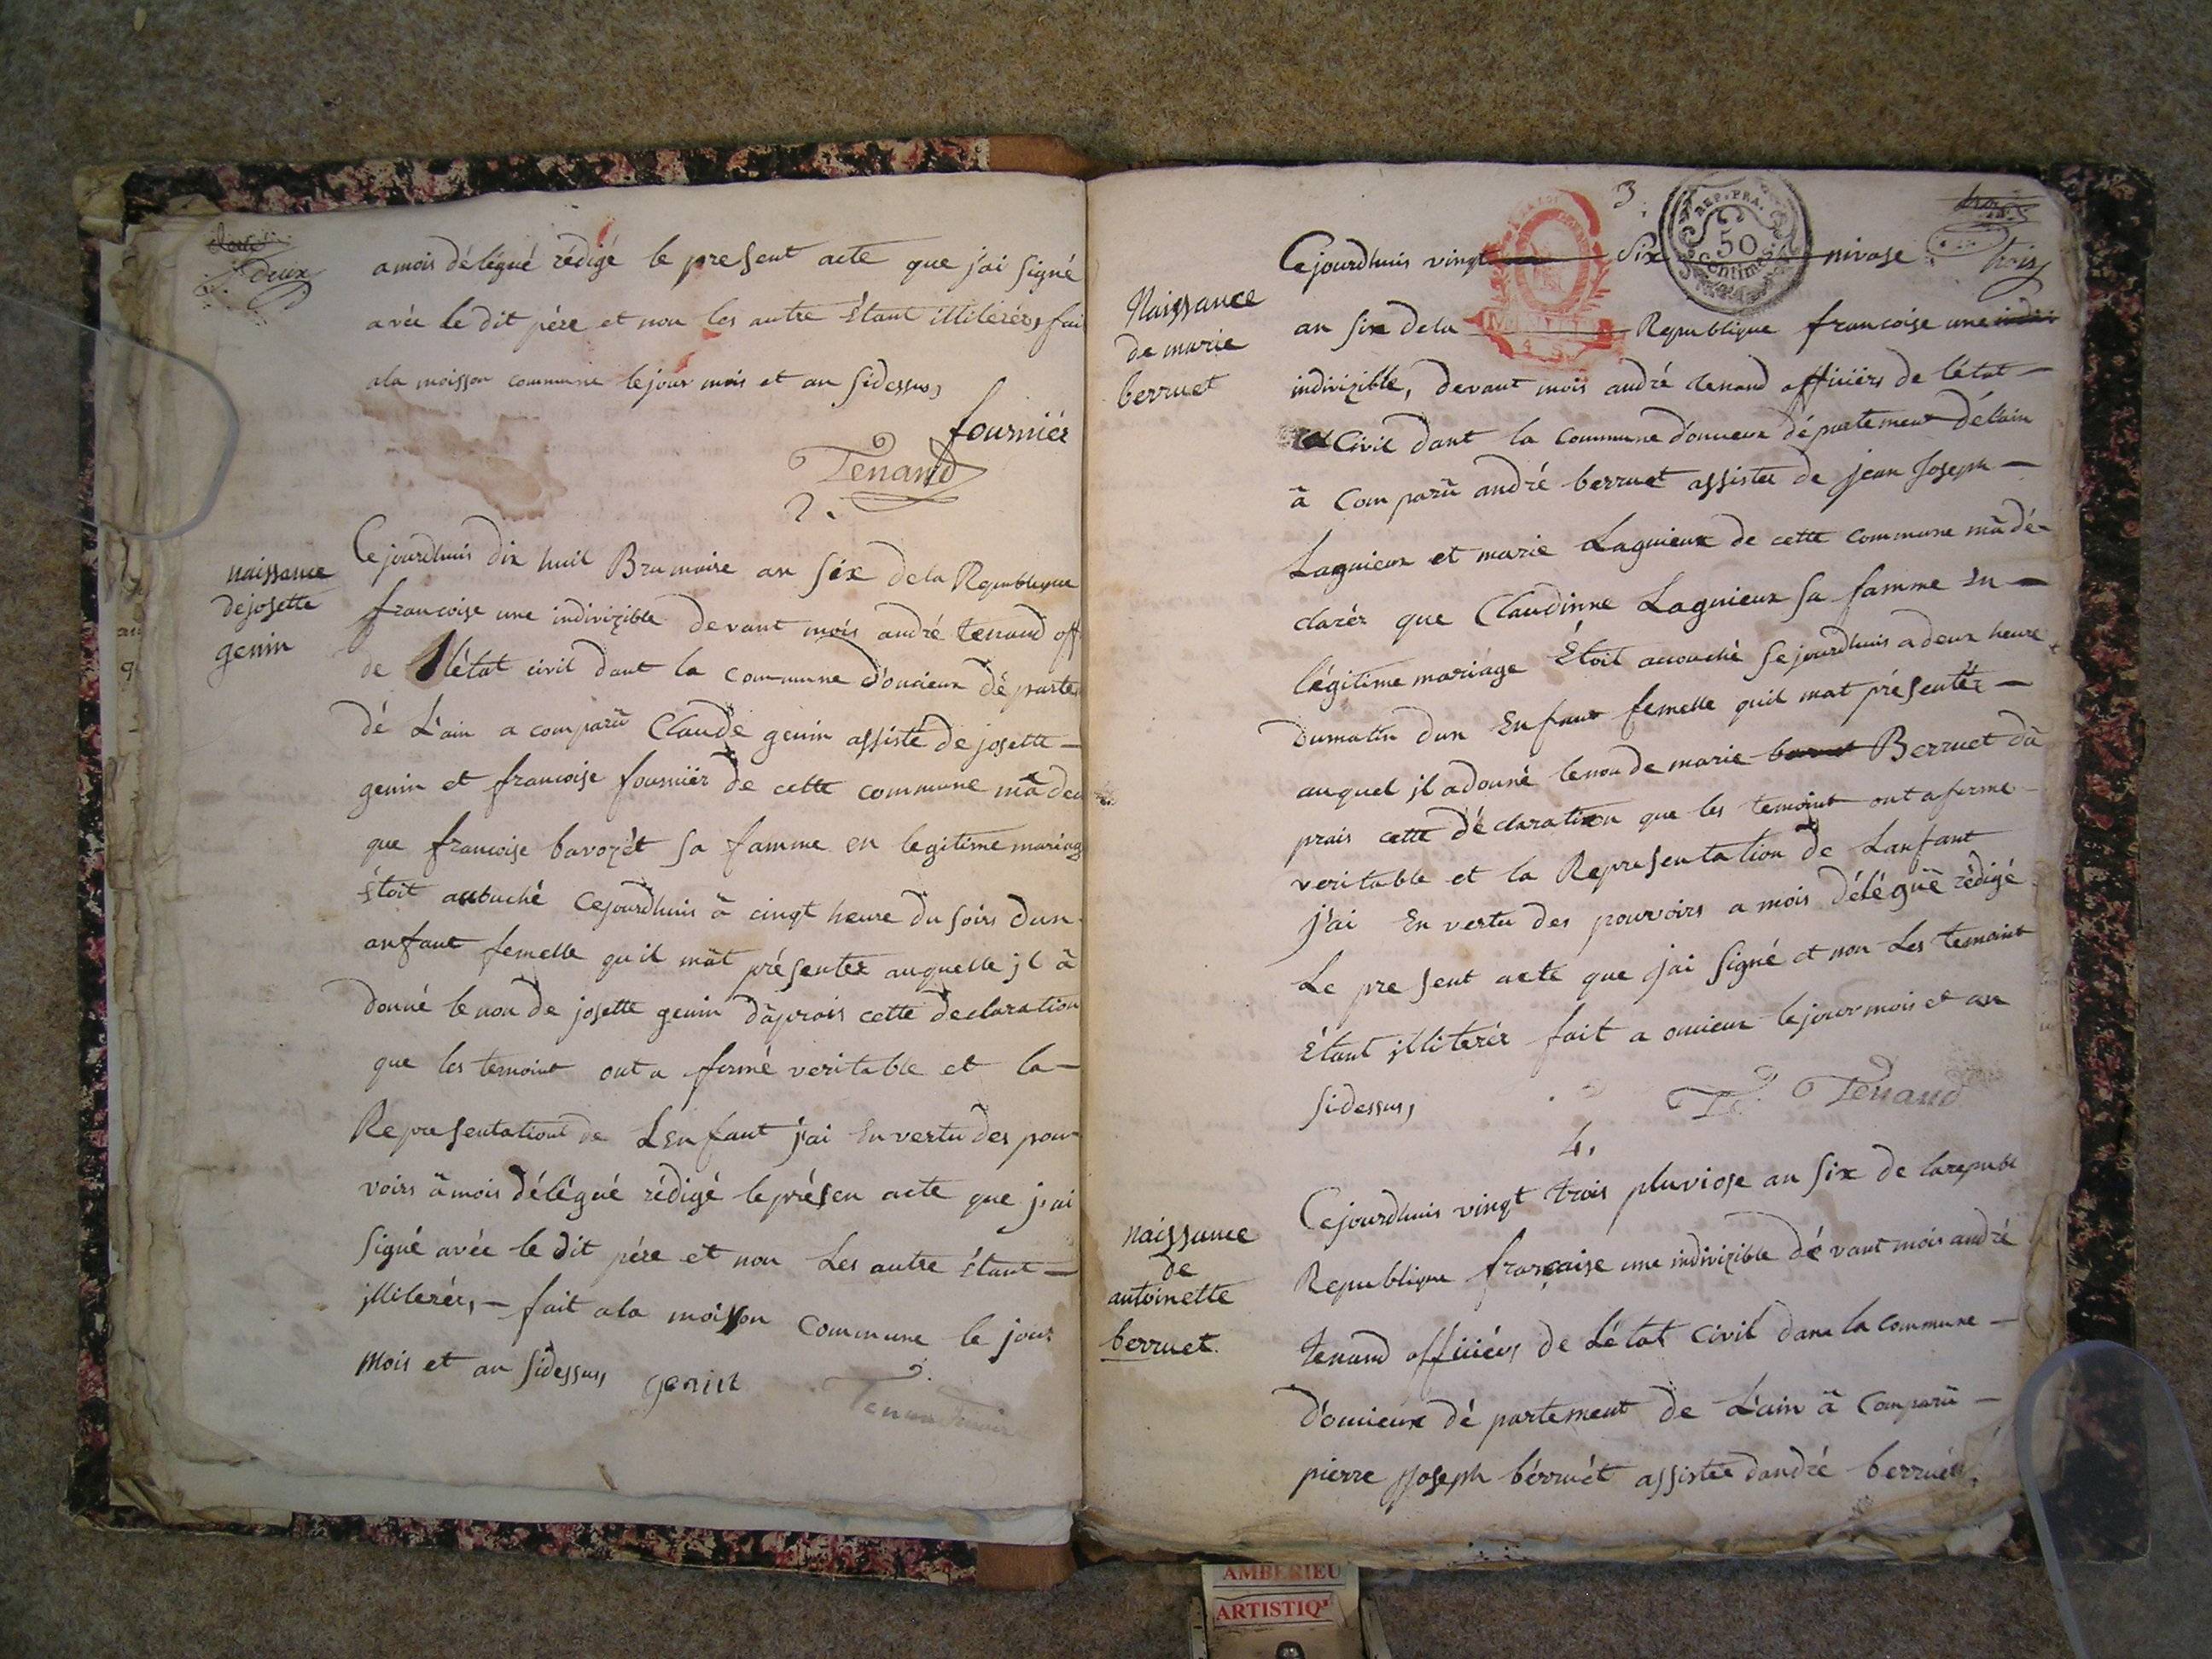 deux
amois délégué rédigé le present acte que j'ai signé
avéc le dit pére et non les autre étant illiterér, fai
ala moisson commune le jour mois et an sidessus,
fourniér
Tenand
2.
naissance
de josette
genin
Cejourdhuis dix huit Brumaire an six de la Republique
francoise une indivizible devant mois andré tenand off
de l'état civil dant la commune d'oncieux départe
dé L'ain a comparû Claude genin assisté de josette —
genin et francoise fourniér de cette commune mâ dec
que francoise bavozét sa famme en legitime mariag
étoit acouché cejourdhuis â cinqt heure du soirs dun
anfant femelle qu'il mât présenter auquelle jl â
donné le non de josette genin d'âprais cette declaration
que les temoint ont a fermé veritable et la —
Representationt de L'enfant j'ai En vertu des pou-
voirs âmois délégué rédigé le présen acte que j'ai
signé avéc le dit pére et non Les autre étant —
jlliterér, — fait ala moisson commune le jour
mois et an sidessus, genin
Tenand
3.
REP. FRA.
50
Centimes
trois
Naissance
de marie
berruet
Cejourdhuis vingt six nivose
an six dela Republique francoise une
indivizible, devant mois andré tenand officiérs de l'état —
Civil dant la commune d'oncieux département délain
â Comparû andré berruet assistée de jean Joseph —
Lagnieux et marie Lagnieux de cette commune mâ dé-
clarér que Claudinne Lagnieux sa famme En —
légitime mariage Étoit acouché sejourdhuis a deux heure
dumatin dun Enfant femelle quil mat présentér —
auquel jl adonné le non de marie Berruet dâ
prais cette déclaration que les temoint ont a fermé
veritable et la Representation de Lanfant
j'ai En vertu des pouvoirs a mois délégué rédigé
Le present acte que j'ai signé et non Les temoint
Étant jlliterér fait a oncieux le jour mois et an
sidessus,
Te. Tenand
4.
naissance
de
antoinette
berruet.
Cejourdhuis vingt trois pluviose an six de larepubl
Republique française une indivizible dévant mois andré
tenand officiérs de Létat Civil dans la commune —
d'oncieux département de L'ain â Comparû —
pierre joseph bérruét assistée dandré berruét
AMBERIEU
ARTISTIQ